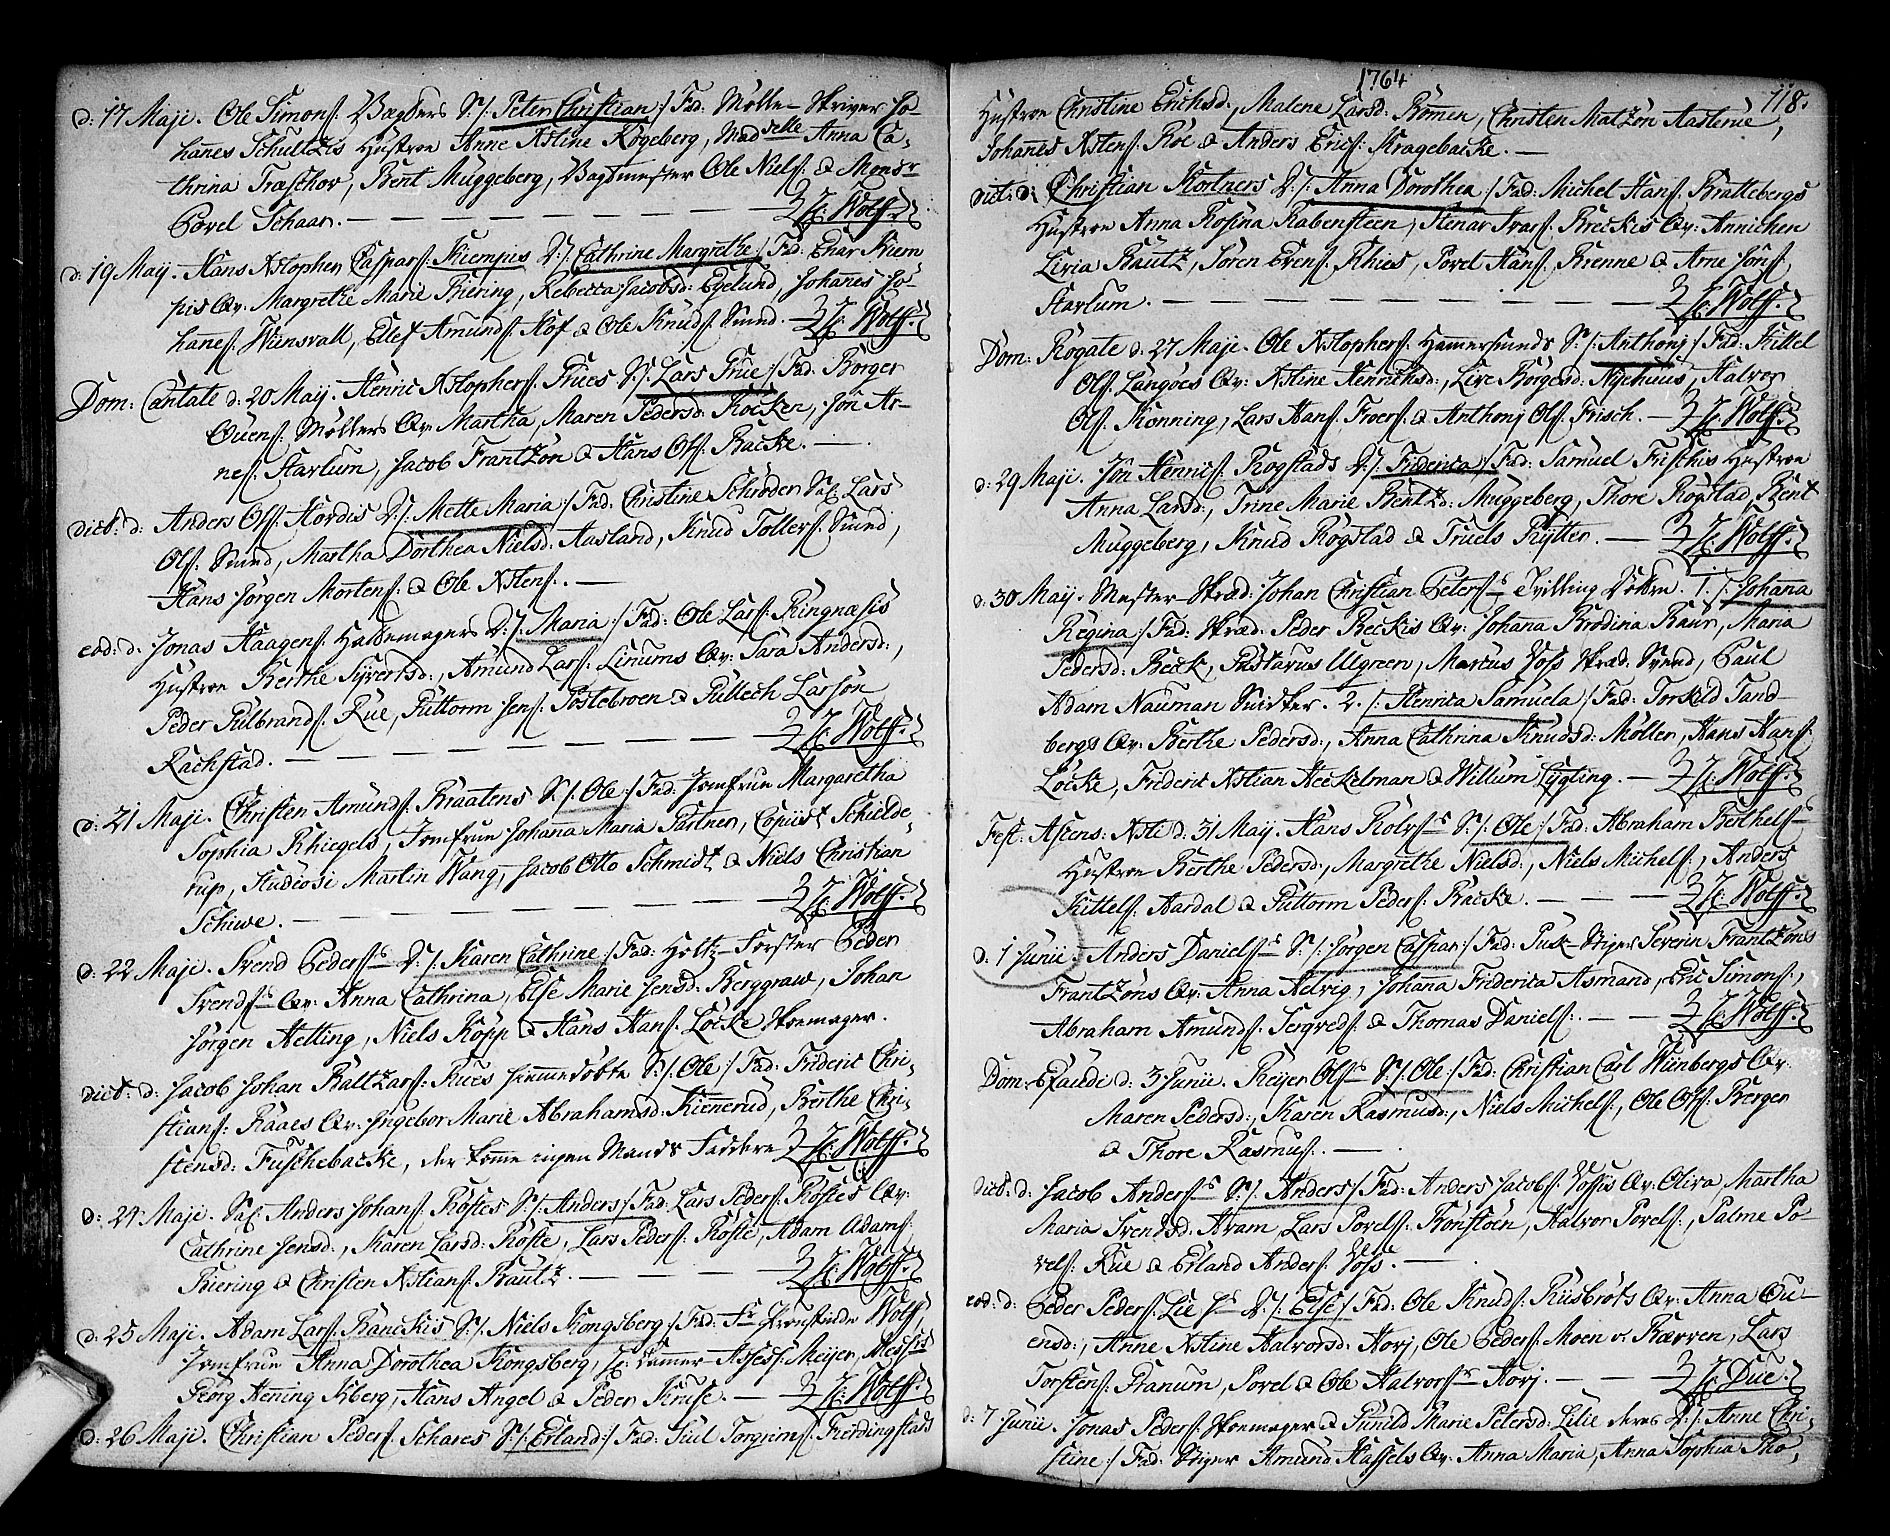 d: 17 Maji. Ole Simons: Vægters S:/: Peter Christian :/ Fad: Mølle-Skriver Jo-
hannes Schultzis Hustroe Anne Xstine Kogeberg, Madselle Anna Ca-
thrina Træschov, Bent Muggeberg, Vagtmester Ole Niels: & Monsr
Povel Schaar. — H: Wolff.
d: 19 Maij. Hans Xstopher Caspars: Kiempis D:/: Cathrine Margrethe :/ Fad: Enar Kiem
pis Qv: Margrethe Marie Biering, Rebecca Jacobsd: Egelund, Johannes Jo-
hanes: Wiinsvall, Ellef Amunds: Hof & Ole Knuds: Sund. — H: Wolff.
Dom: Cantate d: 20 Maij. Henric Xstophers: Frues S:/: Lars Frue :/ Fad: Borger
Ouens: Møllers Qv: Martha, Maren Pedersd: Kocken, Jon Ar-
nes: Harlum, Jacob Frantzøn & Hans Ols: Backe. —
dict: d: Anders Ols: Hordis D:/: Mette Maria :/ Fad: Christine Schrøder Sal: Lars
Ols: Sund, Martha Dorthea Nielsd: Aasland, Knud Tollers: Sund,
Hans Jørgen Mortens: & Ole Xstens:. —
eod: d: Jonas Haagens: Hattemagers D:/: Maria :/ Fad: Ole Lars: Ringnæsis
Hustroe Berthe Syvertsd:, Amund Lars: Linums Qv: Sara Andersd:,
Peder Gulbrands: Rue, Guttorm Jens: Tostebroen & Gullech Larsøn
Rachstad. — H: Wolff.
d: 21 Maji. Christen Amunds: Braatens S:/: Ole :/ Fad: Jomfrue Margaretha
Sophia Rhiegels, Jomfrue Johana Maria Gartner, Copiist Schielde-
rup, Studiosi Martin Wang, Jacob Otto Schmidt & Niels Christian
Schiwe. — H: Wolff.
d: 22 Maji. Svend Peders: D:/: Karen Cathrine :/ Fad: Holtz-Førster Peder
Svends: Qv: Anna Cathrina, Else Marie Jensd: Berggraw, Johan
Jørgen Helting, Niels Kopp & Hans Hans: Locke Skoemager.
dict: d: Jacob Johan Baltzars: Rues hiemmedøbte S:/: Ole :/ Fad: Frideric Chri-
stians: Raaes Qv: Ingebor Marie Abrahamsd: Kiennerud, Berthe Chri-
stensd: Fuschebacke, der komme ingen Mands Faddere H: Wolff.
d: 24 Maji. Sal: Anders Johans: Røstes S:/: Anders :/ Fad: Lars Peders: Røstes Qv:
Cathrine Jensd:, Karen Larsd: Røste, Lars Peders: Røste, Adam Adams:
Biering & Christen Xstians: Rautz. — H: Wolff.
d: 25 Maji. Adam Lars: Banckis S:/: Niels Kongsberg :/ Fad: Provstinde Wolff,
Jomfrue Anna Dorothea Kongsberg, Hr: Cammer Assess: Meijer, Messrs
Georg Hening Isberg, Hans Angel & Peder Kruse. — H: Wolff.
d: 26 Maji. Christian Peders: Schares S:/: Erland :/ Fad: Siul Torgrims: Fierdingstads
1764
118.
Hustroe Christine Erichsd:, Malene Larsd: Rømen, Christen Matzøn Aasterue,
Johannes Xstens: Roe & Anders Erics: Kragebacke. —
dict: d: Christian Kortners D:/: Anna Dorothea :/ Fad: Michel Hans: Brattebergs
Hustroe Anna Rosina Rabensteen, Stenar Ivars: Breckis Qv: Annichen
Livia Rautz, Søren Evens: Rhies, Povel Hans: Brenne & Arne Jons:
Harlum. — H: Wolff.
Dom: Rogate d: 27 Maji. Ole Xstophers: Hammersunds S:/: Anthonj :/ Fad: Kittel
Ols: Langoes Qv: Xstine Henrichsd:, Live Børgesd: Nyehuus, Halvor
Ols: Konning, Lars Hans: Froers: & Anthonj Ols: Frisch. — H: Wolff.
d: 29 Maji. Jon Henrics: Rogstads D:/: Friderica :/ Fad: Samuel Fuschis Hustroe
Anna Larsd:, Trine Marie Bentzd: Muggeberg, Thore Rogstad, Bent
Muggeberg, Knud Rogstad & Truels Rytter. — H: Wolff.
d: 30 Maij. Mester-Skræd: Johan Christian Peters: Tvilling Døttre. 1. /: Johana
Regina :/ Fad: Skræd: Peder Beckis Qv: Johana Brodina Baur, Maria
Pedersd: Beck, Gustavus Ulgreen, Marcus Foss Skræd: Svend, Paul
Adam Nauman Snidker. 2. /: Henrica Samuela :/ Fad: Torkild Tand
bergs Qv: Berthe Pedersd:, Anna Cathrina Knudsd: Møller, Hans Hans:
Locke, Frideric Xstian Heckelman & Willum Cygting. — H: Wolff.
Fest: Ascens: Xsti d: 31 Maij. Hans Rolvs: S:/: Ole :/ Fad: Abraham Berthels:
Hustroe Berthe Pedersd:, Margrethe Nielsd:, Niels Michels:, Anders
Kittels: Aardal & Guttorm Peders: Backe. — H: Wolff.
d: 1 Junii. Anders Daniels: S:/: Jørgen Caspar :/ Fad: Pusk-Stiger Severin Frantzøns
Frantzøns Qv: Anna Helvig, Johana Friderica Asmand, Eric Simons:,
Abraham Amunds: Tergveds: & Thomas Daniels:. — H: Wolff.
Dom: Exaude d: 3 Junii. Reijer Ols: S:/: Ole :/ Fad: Christian Carl Wienbergs Qv:
Maren Pedersd:, Karen Rasmusd:, Niels Michels:, Ole Ols: Bergen
& Thore Rasmus:. —
dict: d: Jacob Anders: S:/: Anders :/ Fad: Anders Jacobs: Fossis Qv: Oliva, Martha
Maria Svendsd: Aram, Lars Povels: Bonstøen, Halvor Povels:, Palme Po-
vels: Rue & Erland Anders: Foss. —
eod: d: Peder Peders: Lie D:/: Else :/ Fad: Ole Knuds: Riisbrots Qv: Anna Ou-
ensd:, Anne Xstine Halvorsd: Horj, Ole Peders: Moen v. Kærven, Lars
Torstens: Granum, Povel & Ole Halvors: Horj. — H: Due.
d: 7 Junii. Jonas Peders: Skoemager & Gunild Marie Petersd: Lilie deres D:/: Anne Chri-
stine :/ Fad: Stiger Amund Hassels Qv: Anna Maria, Anna Sophia Tho-